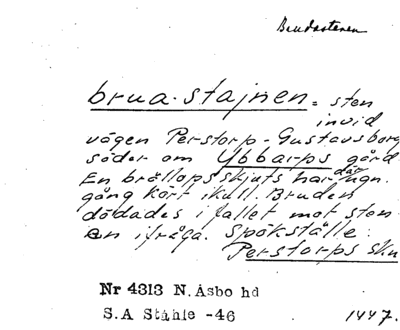 Brudastenen
brua-stajnen = sten
invid
vägen Perstorp-Gustavsborg
söder om Ybbarps gård
En bröllopsskjuts har där ngn.
gång kört ikull. Bruden
dödades i fallet mot sten
en ifråga. Spökställe.
Perstorps skn
Nr 4313 N. Åsbo hd
S.A Ståhle -46 1447.